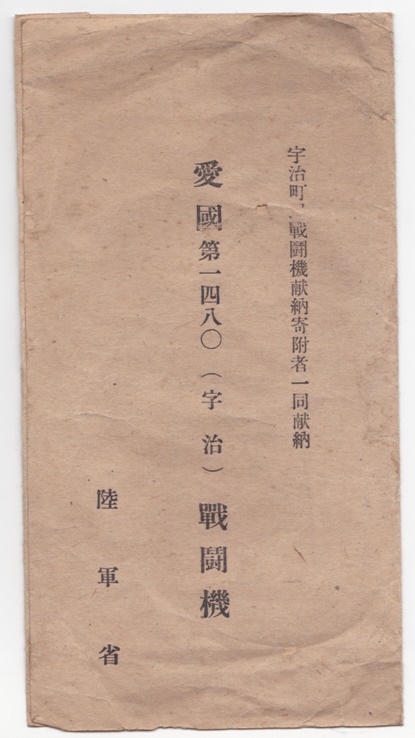 宇治町、戰鬪機献納寄附者一同献納
愛國第一四八〇（宇治）戰鬪機
陸軍省